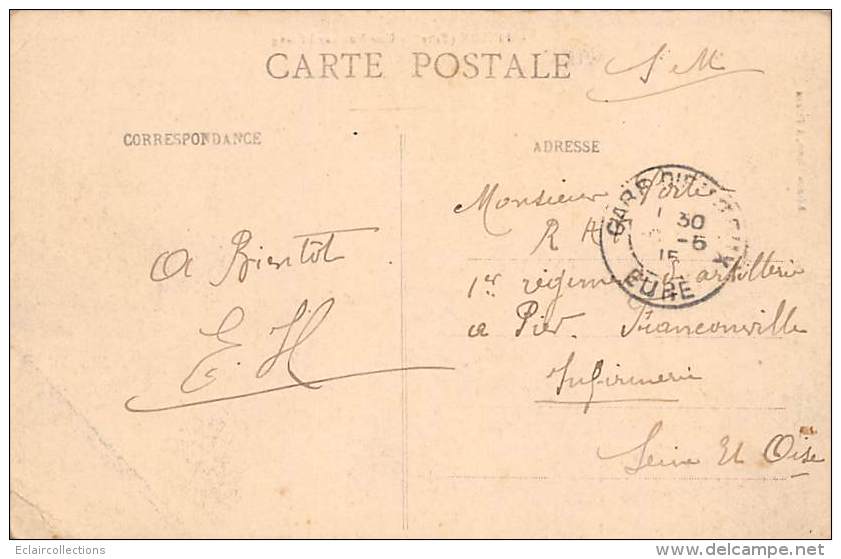 CARTE POSTALE
S M
CORRESPONDANCE
ADRESSE
GARE D'EVREUX
30
-5
15
EURE
Monsieur
R A
1er régiment d'artillerie
a Pied. Franconville
Infirmerie
Seine Et Oise
a Bientôt
E. H
Eclaircollections
delcampe.net